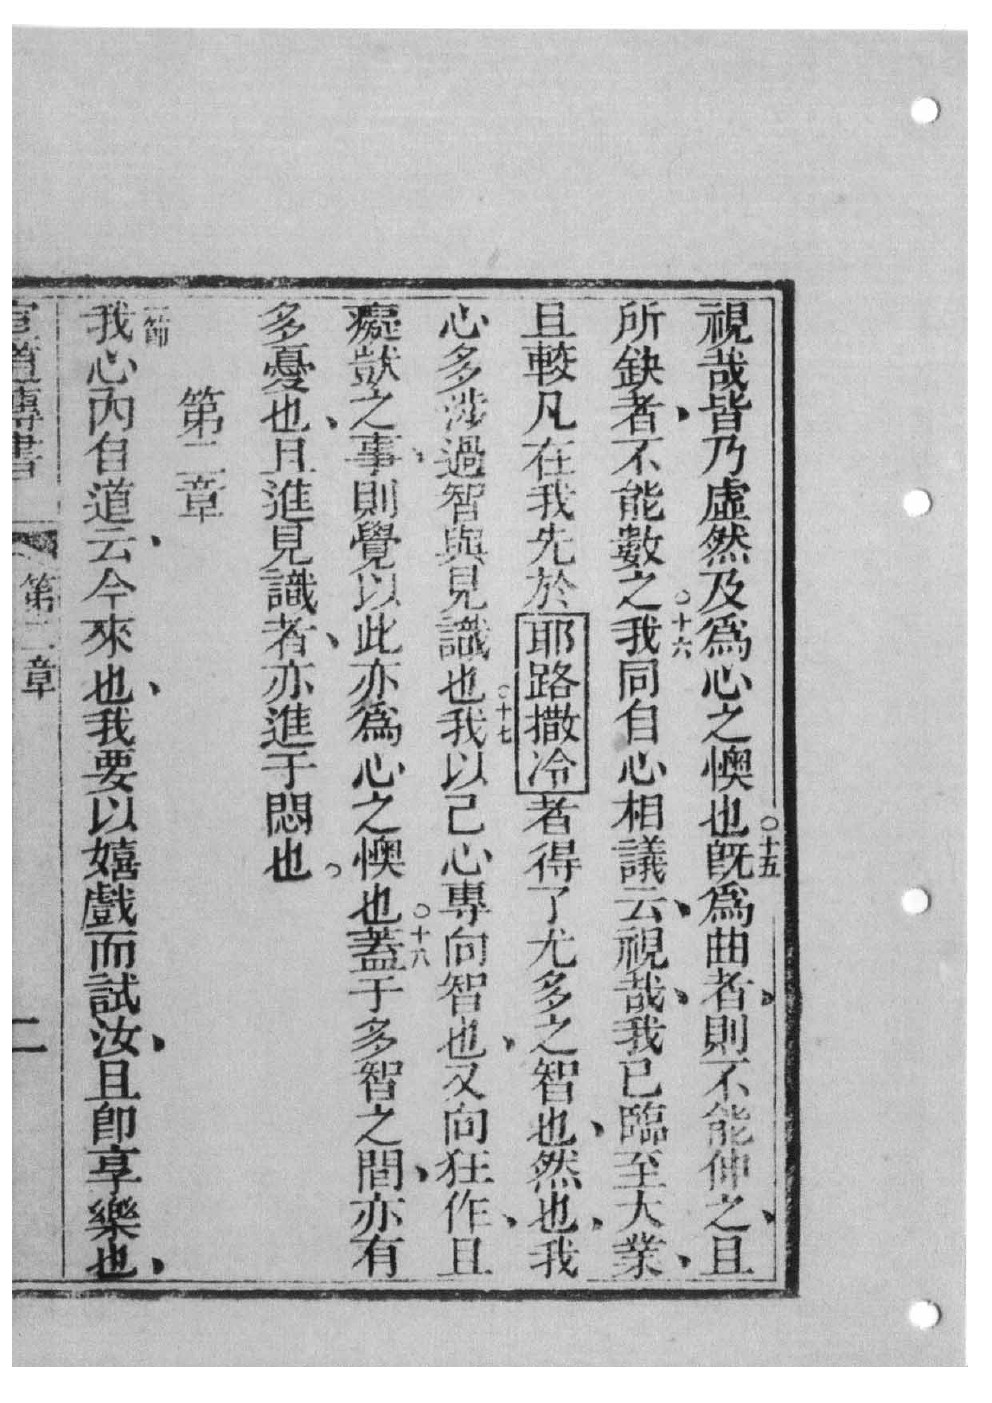 視哉皆乃虛然及爲心之懊也○十五旣爲曲者、則不能伸之、且
所缺者、不能數之○十六我同自心相議云、視哉、我已臨至大業、
且較凡在我先於耶路撒冷者得了尤多之智也、然也、我
心多涉過智與見識也○十七我以己心專向智也、又向狂作、且
癡獃之事、則覺以此亦爲心之懊也○十八蓋于多智之間、亦有
多憂也、且進見識者、亦進于悶也。
第二章
一節我心內自道云、今來也、我要以嬉戲而試汝、且卽享樂也、
第二章
二